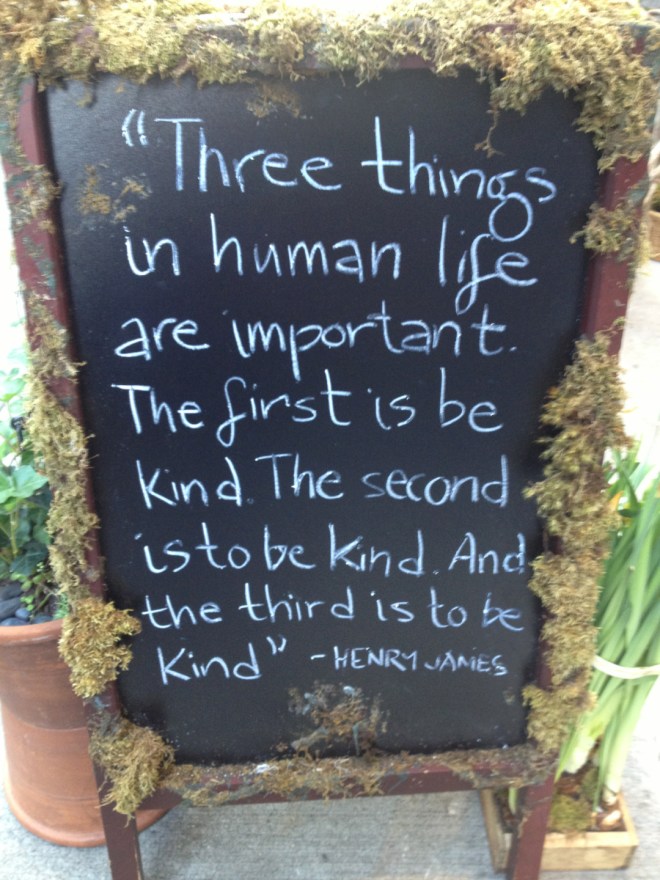 "Three things
in human life
are important.
The first is be
kind. The second
is to be kind. And
the third is to be
kind" - HENRY JAMES